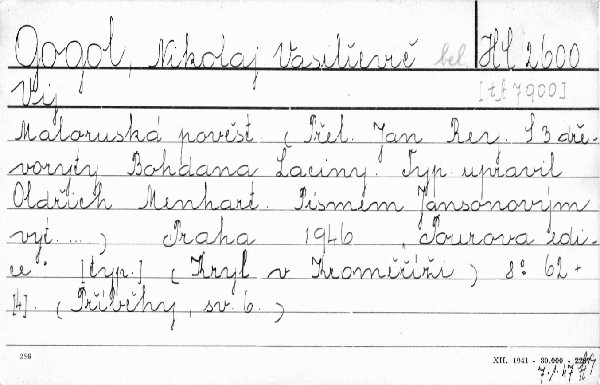 Gogol, Nikolaj Vasiljevič bel. Hl 2600
Vij [tf. 7900]
Maloruská pověst. (Přel. Jan Rey. S 3 dře-
voryty Bohdana Laciny. Typ. upravil
Oldřich Menhart. Písmem Jansonovým
vyt. ...) Praha 1946, Pourova edi-
ce [typ.] (Kryl v Kroměříži) 8° 62 +
[4]. (Příběhy, sv. 6.)
286 XII. 1941 - 30.000 -